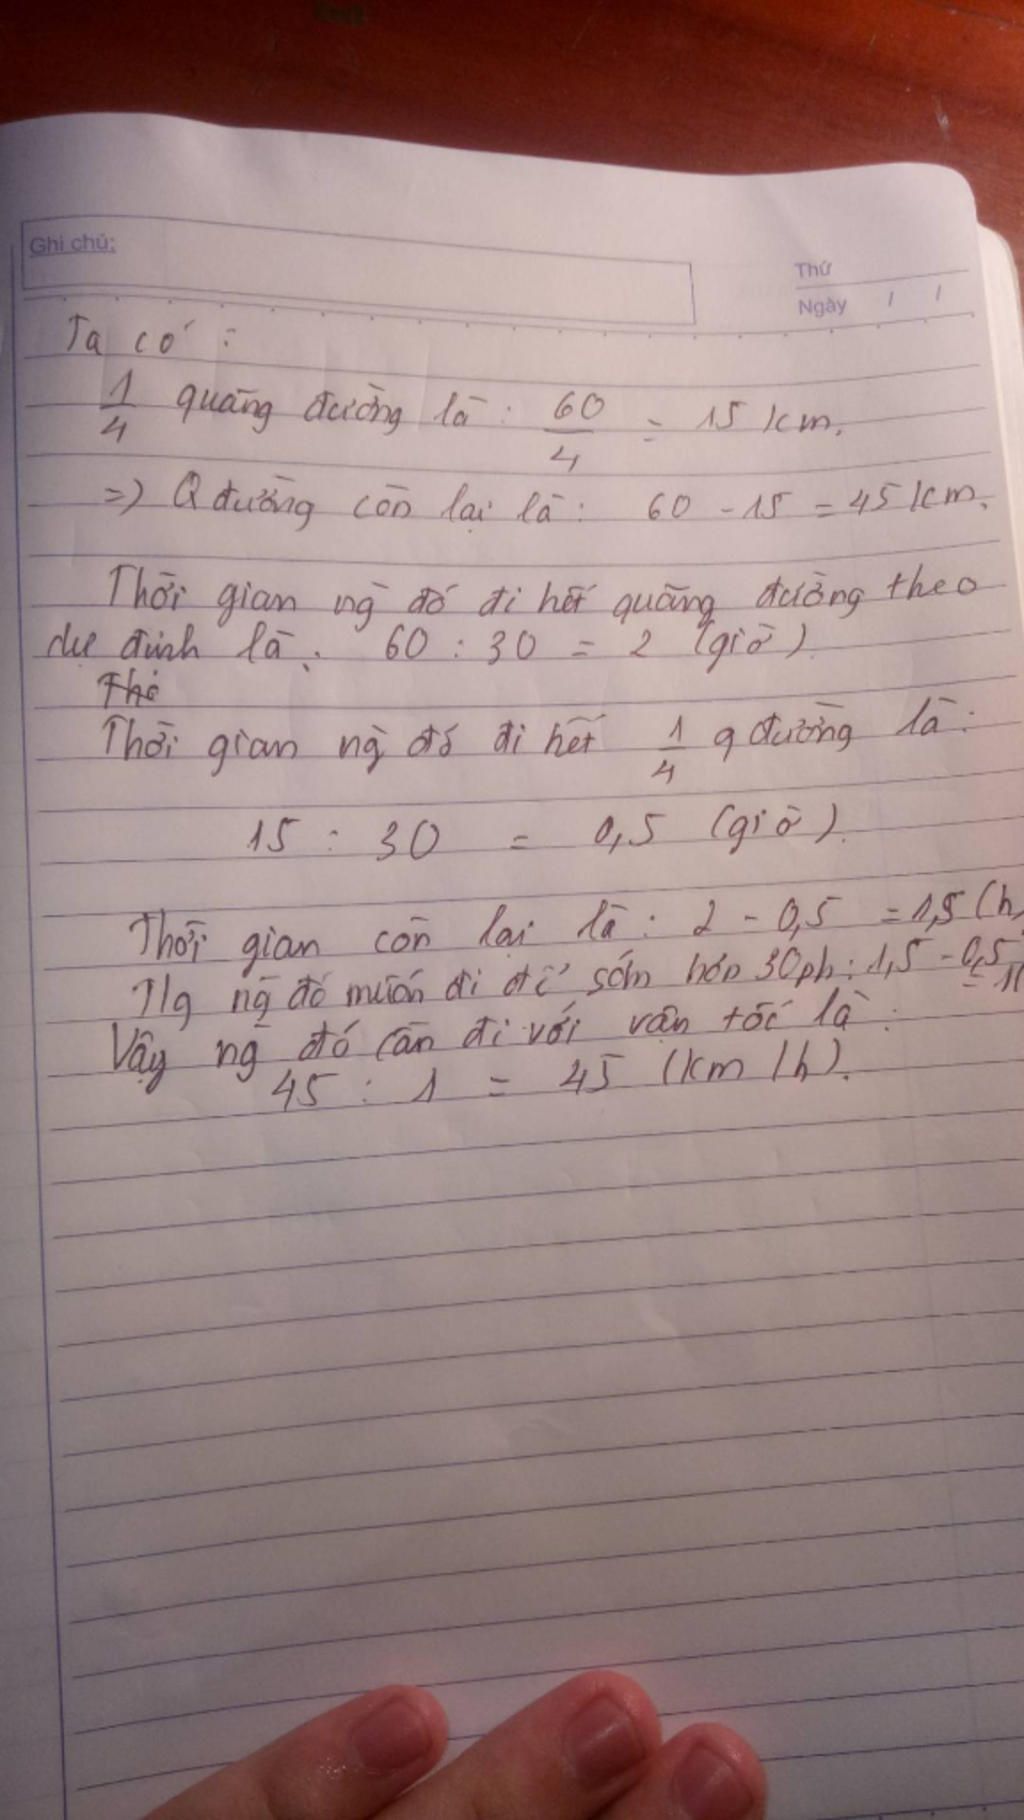 Ghi chú:
Thứ
Ngày / /
Ta có :
1/4 quãng đường là : 60/4 = 15 km.
=) Q đường còn lại là : 60 - 15 = 45 km.
Thời gian ng đó đi hết quãng đường theo
dự định là : 60 : 30 = 2 (giờ).
Thờ
Thời gian ng đó đi hết 1/4 q đường là :
15 : 30 = 0,5 (giờ).
Thời gian còn lại là : 2 - 0,5 = 1,5 (h)
T/g ng đó muốn đi để sớm hơn 30ph : 1,5 - 0,5 = 1
Vậy ng đó cần đi với vận tốc là :
45 : 1 = 45 (km/h).